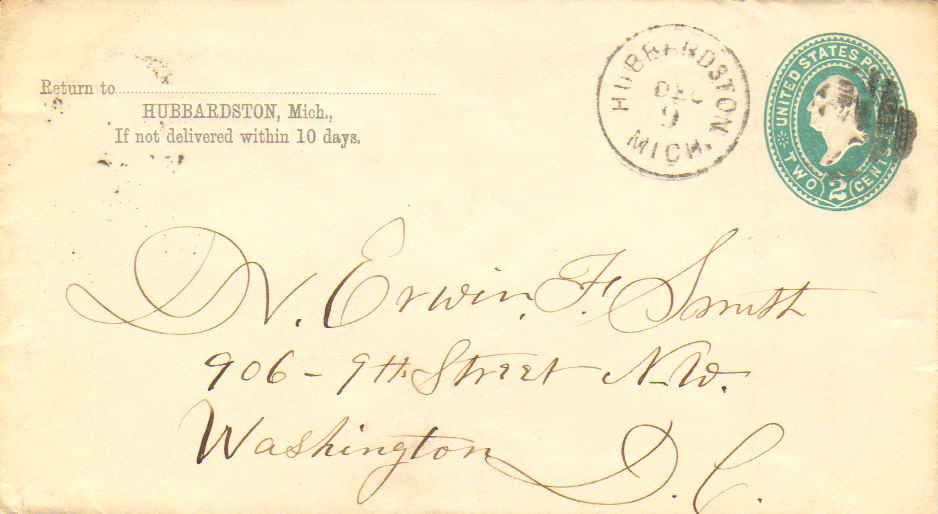 Return to
HUBBARDSTON, Mich.,
If not delivered within 10 days.
HUBBARDSTON,
DEC
9
MICH.
UNITED STATES
TWO 2 CENTS
Dr. Erwin, F. Smith
906 - 9th Street N.W.
Washington D.C.